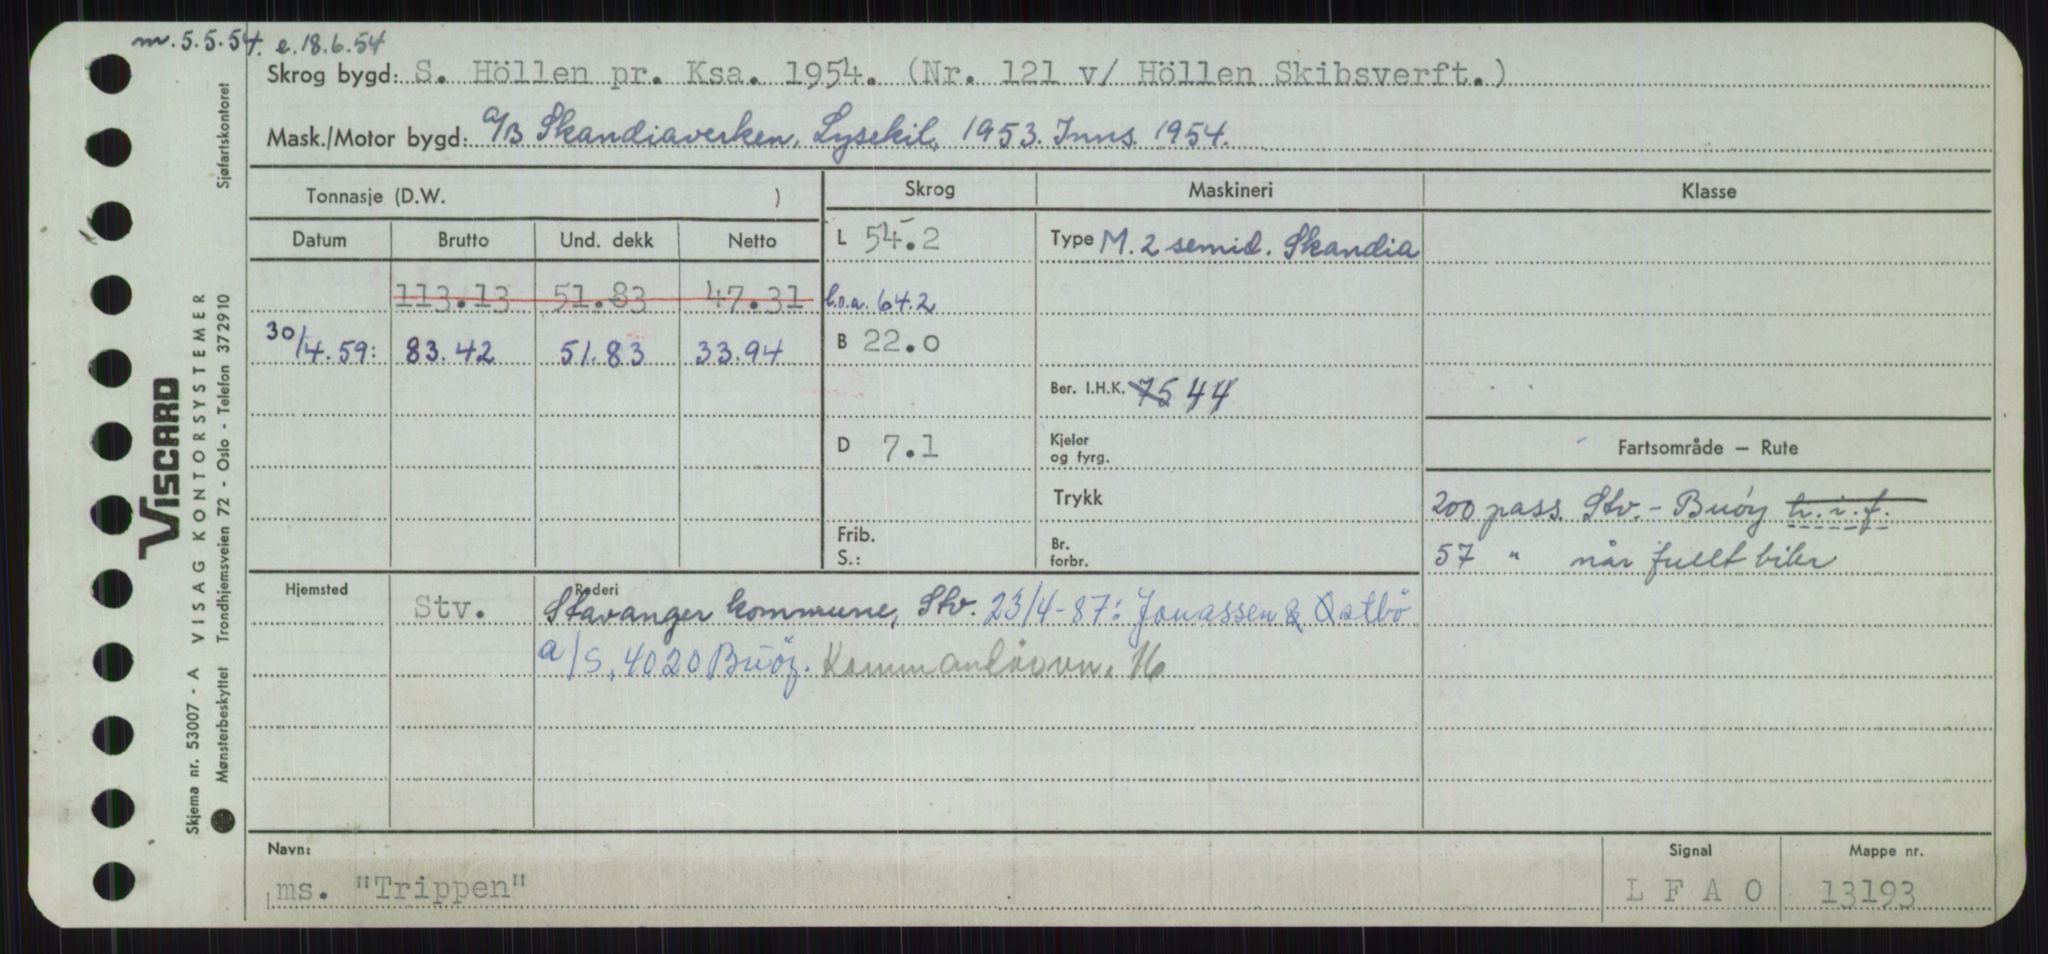 m. 5.5.54. e. 18.6.54
Skrog bygd: S. Höllen pr. Ksa. 1954. (Nr. 121 v/ Höllen Skibsverft.)
Mask./Motor bygd: a/B Skandiaverken, Lysekil, 1953. Inns. 1954.
Tonnasje (D.W. )
Skrog Maskineri Klasse
Datum Brutto Und. dekk Netto
L 54.2 Type M. 2 semid. Skandia
113.13 51.83 47.31 l.o.a. 64.2
30/4.59: 83.42 51.83 33.94 B 22.0
Ber. I.H.K. 75 44
D 7.1 Kjeler og fyrg.
Fartsområde — Rute
Trykk
200 pass. Stv. - Buöy t.i.f.
Frib.
S.:
Br.
forbr.
57 " når fullt biler
Hjemsted Rederi
Stv. Stavanger kommune, Stv. 23/4-87: Jonassen & Östbö
a/s, 4020 Buöy. 16
Navn: Signal Mappe nr.
ms. "Trippen" L F A O 13193
VISCARD
Skjema nr. 53007 - A VISAG KONTORSYSTEMER
Mønsterbeskyttet Trondhjemsveien 72 - Oslo - Telefon 372910 Sjøfartskontoret